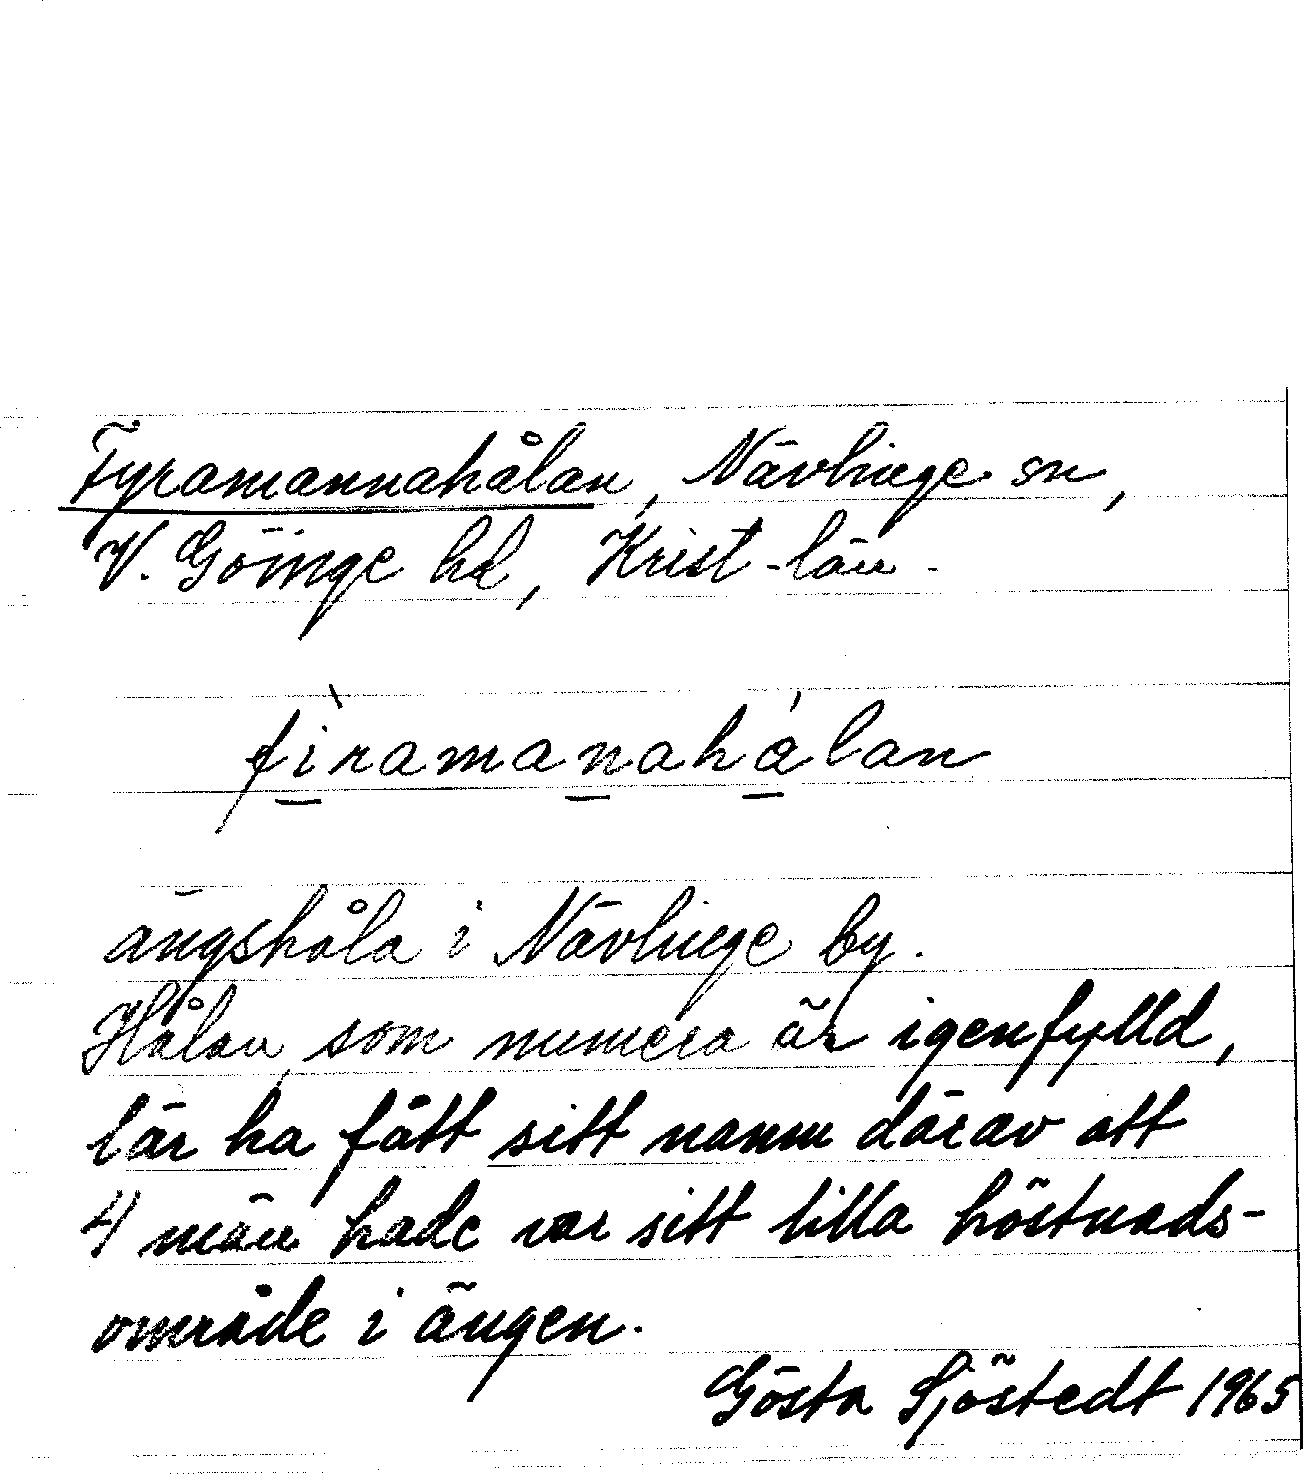 Fyramannahålan, Nävlinge sn,
V. Göinge hd, Krist-län.
fìramanahálan
ängshåla i Nävlinge by.
Hålan, som numera är igenfylld,
lär ha fått sitt namn därav att
4 män hade var sitt lilla höstnads-
område i ängen.
Gösta Sjöstedt 1965